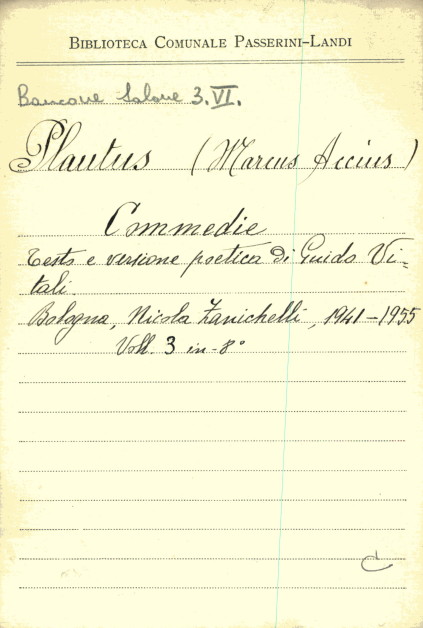 BIBLIOTECA COMUNALE PASSERINI-LANDI
Bancone Salone 3.VI.
Plautus (Marcus Accius)
Commedie
Testo e versione poetica di Guido Vi=
tali.
Bologna, Nicola Zanichelli, 1941-1955
Voll. 3 in-8°
C